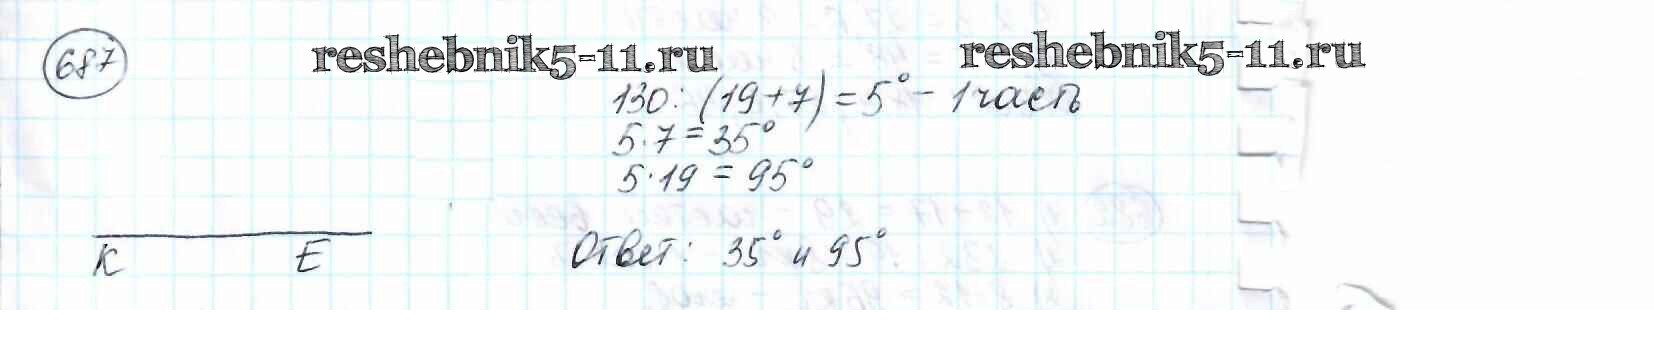 687
reshebnik5-11.ru reshebnik5-11.ru
130:(19+7)=5° - 1 часть
5·7=35°
5·19=95°
K E
Ответ: 35° и 95°.